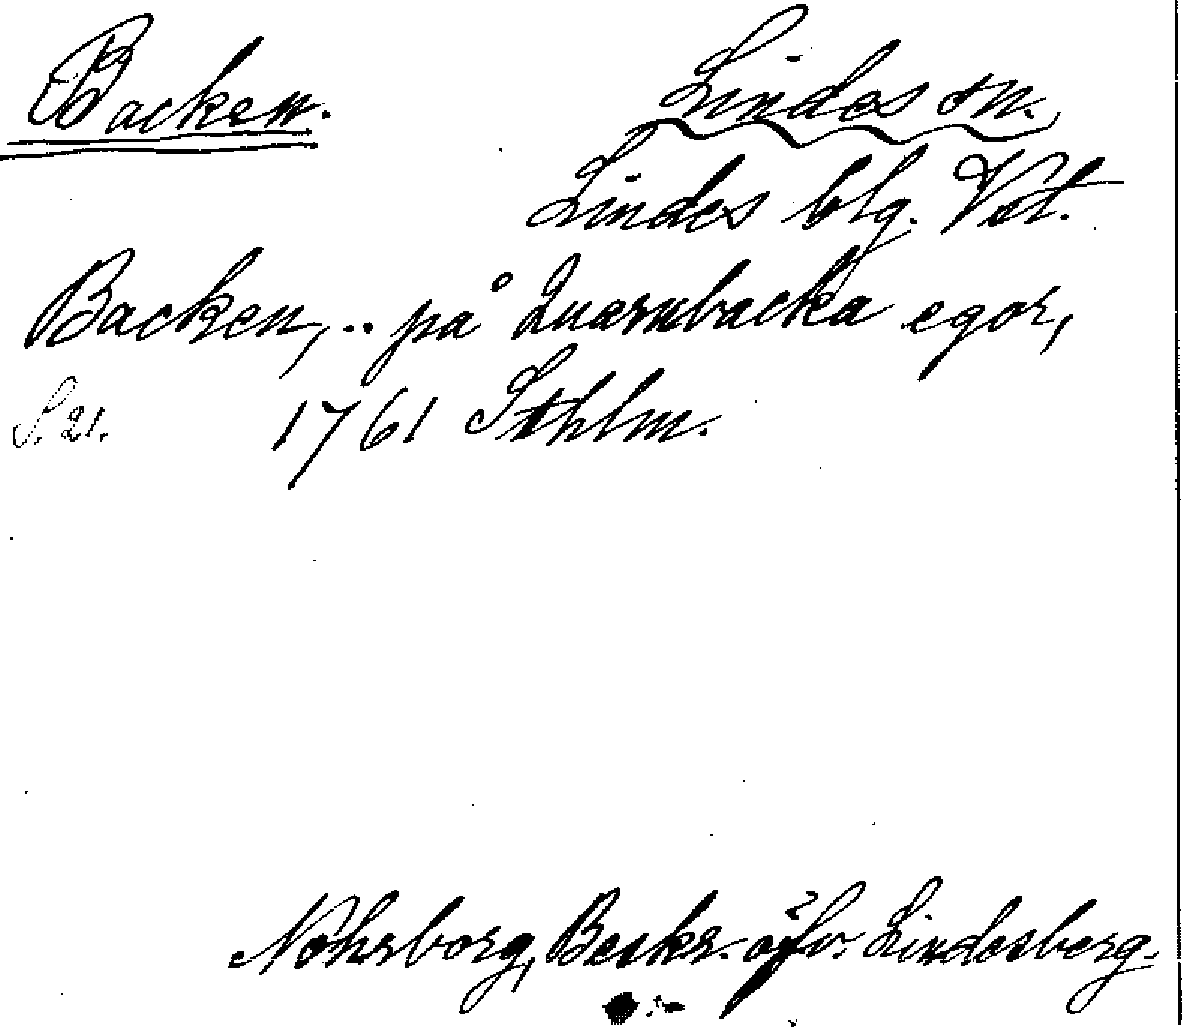 Backen.
Lindes sn.
Lindes blg. Vstl.
Backen, .. på Quarnbacka egor,
S. 21. 1761 Sthlm.
Nohrborg, Beskr. öfv. Lindesberg.